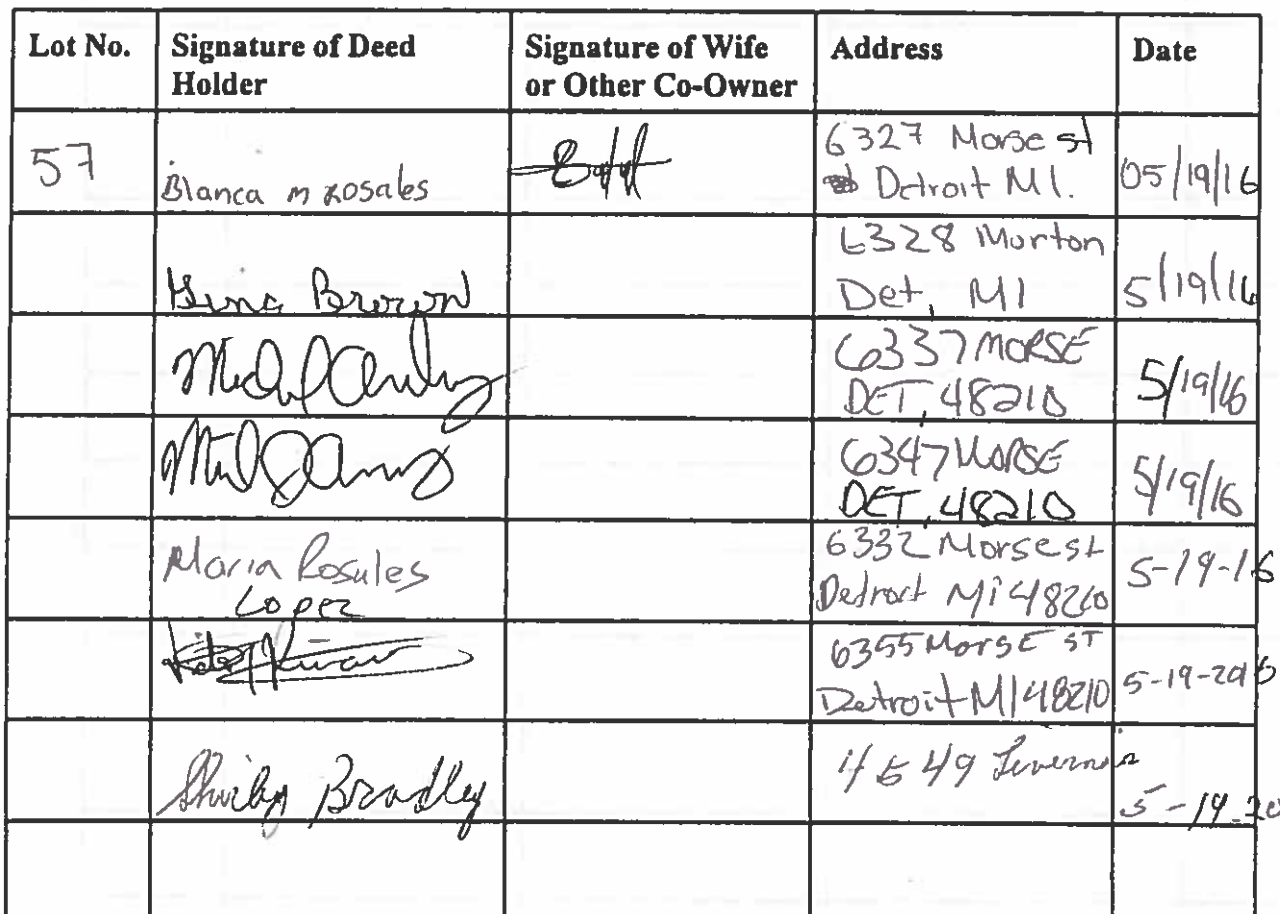 Lot No. Signature of Deed Holder Signature of Wife or Other Co-Owner Address Date
57 Blanca m Rosales 6327 Morse st
Detroit MI. 05/19/16
Gina Brown 6328 Morton
Det, MI 5/19/16
6337 MORSE
DET, 48210 5/19/16
6347 MORSE
DET, 48210 5/19/16
Maria Rosales
Lopez 6332 Morse st
Detroit Mi 48210 5-19-16
6355 MorsE ST
Detroit MI 48210 5-19-2016
Shirley Bradley 4649 Livernois
5-19-20